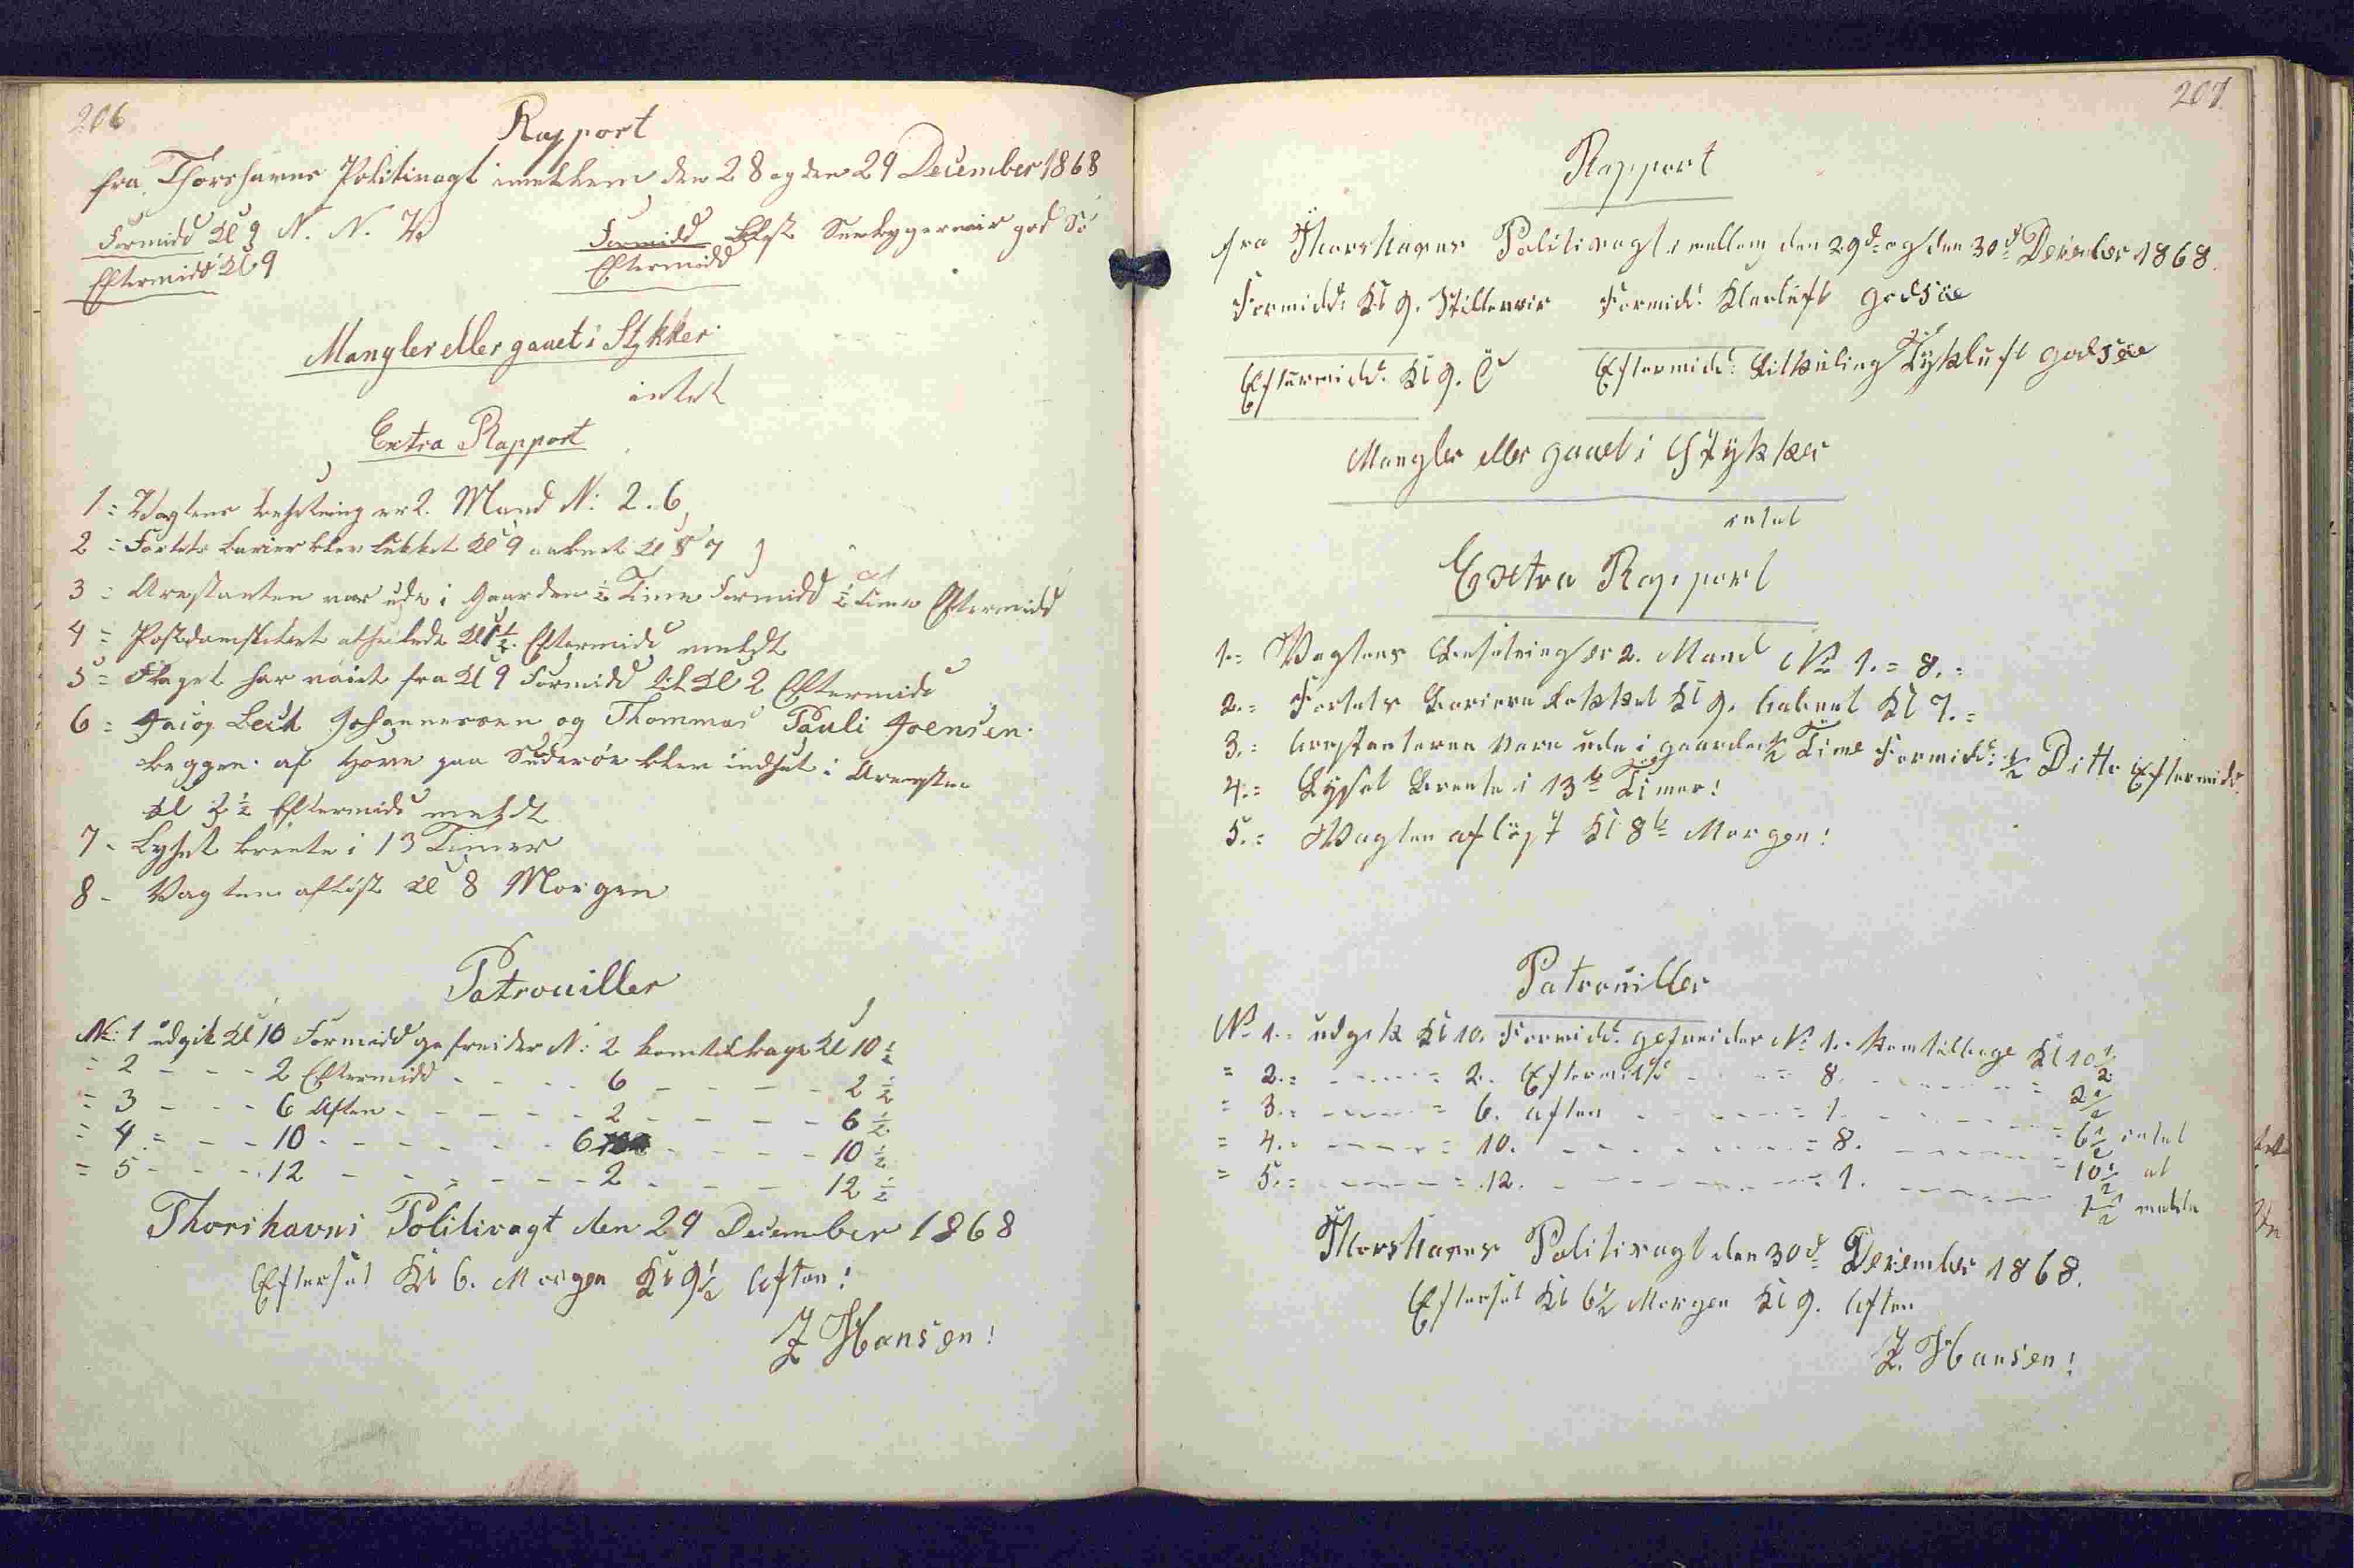 206
Rapport
fra Thorshavns Politivagt imellem den 28 og den 29 December 1868
Formidd Kl 9 N. N. V.
Formidd god Sö
Eftermidd Kl 9
Eftermidd
Mangler eller gaaet i Stykker
intet
Extra Rapport
1 = Vagtens besetning er 2. Mand N: 2. 6
2 = Fortets barier blev lukket Kl 9 aabnet Kl 7
3 = Arestanten var ude i Gaarden ½ Time Formidd ½ Time Eftermidd
4 = Postdampskibet afseilede Kl Eftermidd meldt
5 = Flaget har vaiet fra Kl 9 Formidd til Kl 2 Eftermidd
6 = Johannessen og Thommas Pauli Joensen
begge af Hove paa Suderöe blev indsat i Aresten
Kl ½ Eftermidd meldt
7 - Lyset brente i 13 Timer
8 - Vagten aflöst Kl 8 Morgen
Patrouiller
N: 1 udgik Kl 10 Formidd gefreider N: 2 kom tilbage Kl 10 ½
= 2 - - - 2 Eftermidd - - - - 6 - - - - 2 ½
= 3 - - - 6 Aften - - - - - 2 - - - - 6 ½
= 4 = - - 10 - - - - - - 6 - - - - 10 ½
= 5 - - - 12 - - - - - - 2 - - - 12 ½
Thorshavns Politivagt den 29 December 1868
Efterset Kl 6. Morgen Kl 9½ Aften!
Z Hansen!
207
Rapport
fra Thorshavns Politivagt imellem den 29d= og den 30d= December 1868.
Formidd: Kl 9. Stilleveir Formidd: Klarluft god Söe
Eftermidd: Kl 9. Ö Eftermidd: Tykluft god Söe
Mangler eller gaaet i Stykker
intet
Extra Rapport
1.= Vagtens Besetning er 2. Mand No 1. = 8. =
2.= Fortets Bariere lukket Kl 9. aabnet Kl 7. =
3.= Arestanterne vare ude i gaarden ½ Time Formidd: ½ Ditto Eftermidd.
4.= Lyset Brente i 13 Timer!
5.= Vagten aflöst Kl 8 Morgen!
Patrouiller
No 1.= udgik Kl 10. Formidd. gefreider No 1. kom tilbage Kl 10½
= 2.= - - - - = 2. Eftermidd - - - = 8. - - - - = 2½
= 3.= - - - - = 6. aften - - - - = 1. - - - - = 6½ intet
= 4.= - - - - = 10. - - - - - - = 8. - - - - = 10½ at
= 5.= - - - - = 12. - - - - - - = 1. - - - - 1½ melde
Thorshavns Politivagt den 30d= December 1868.
Efterset Kl 6½ Morgen Kl 9. Aften
Z. Hansen!